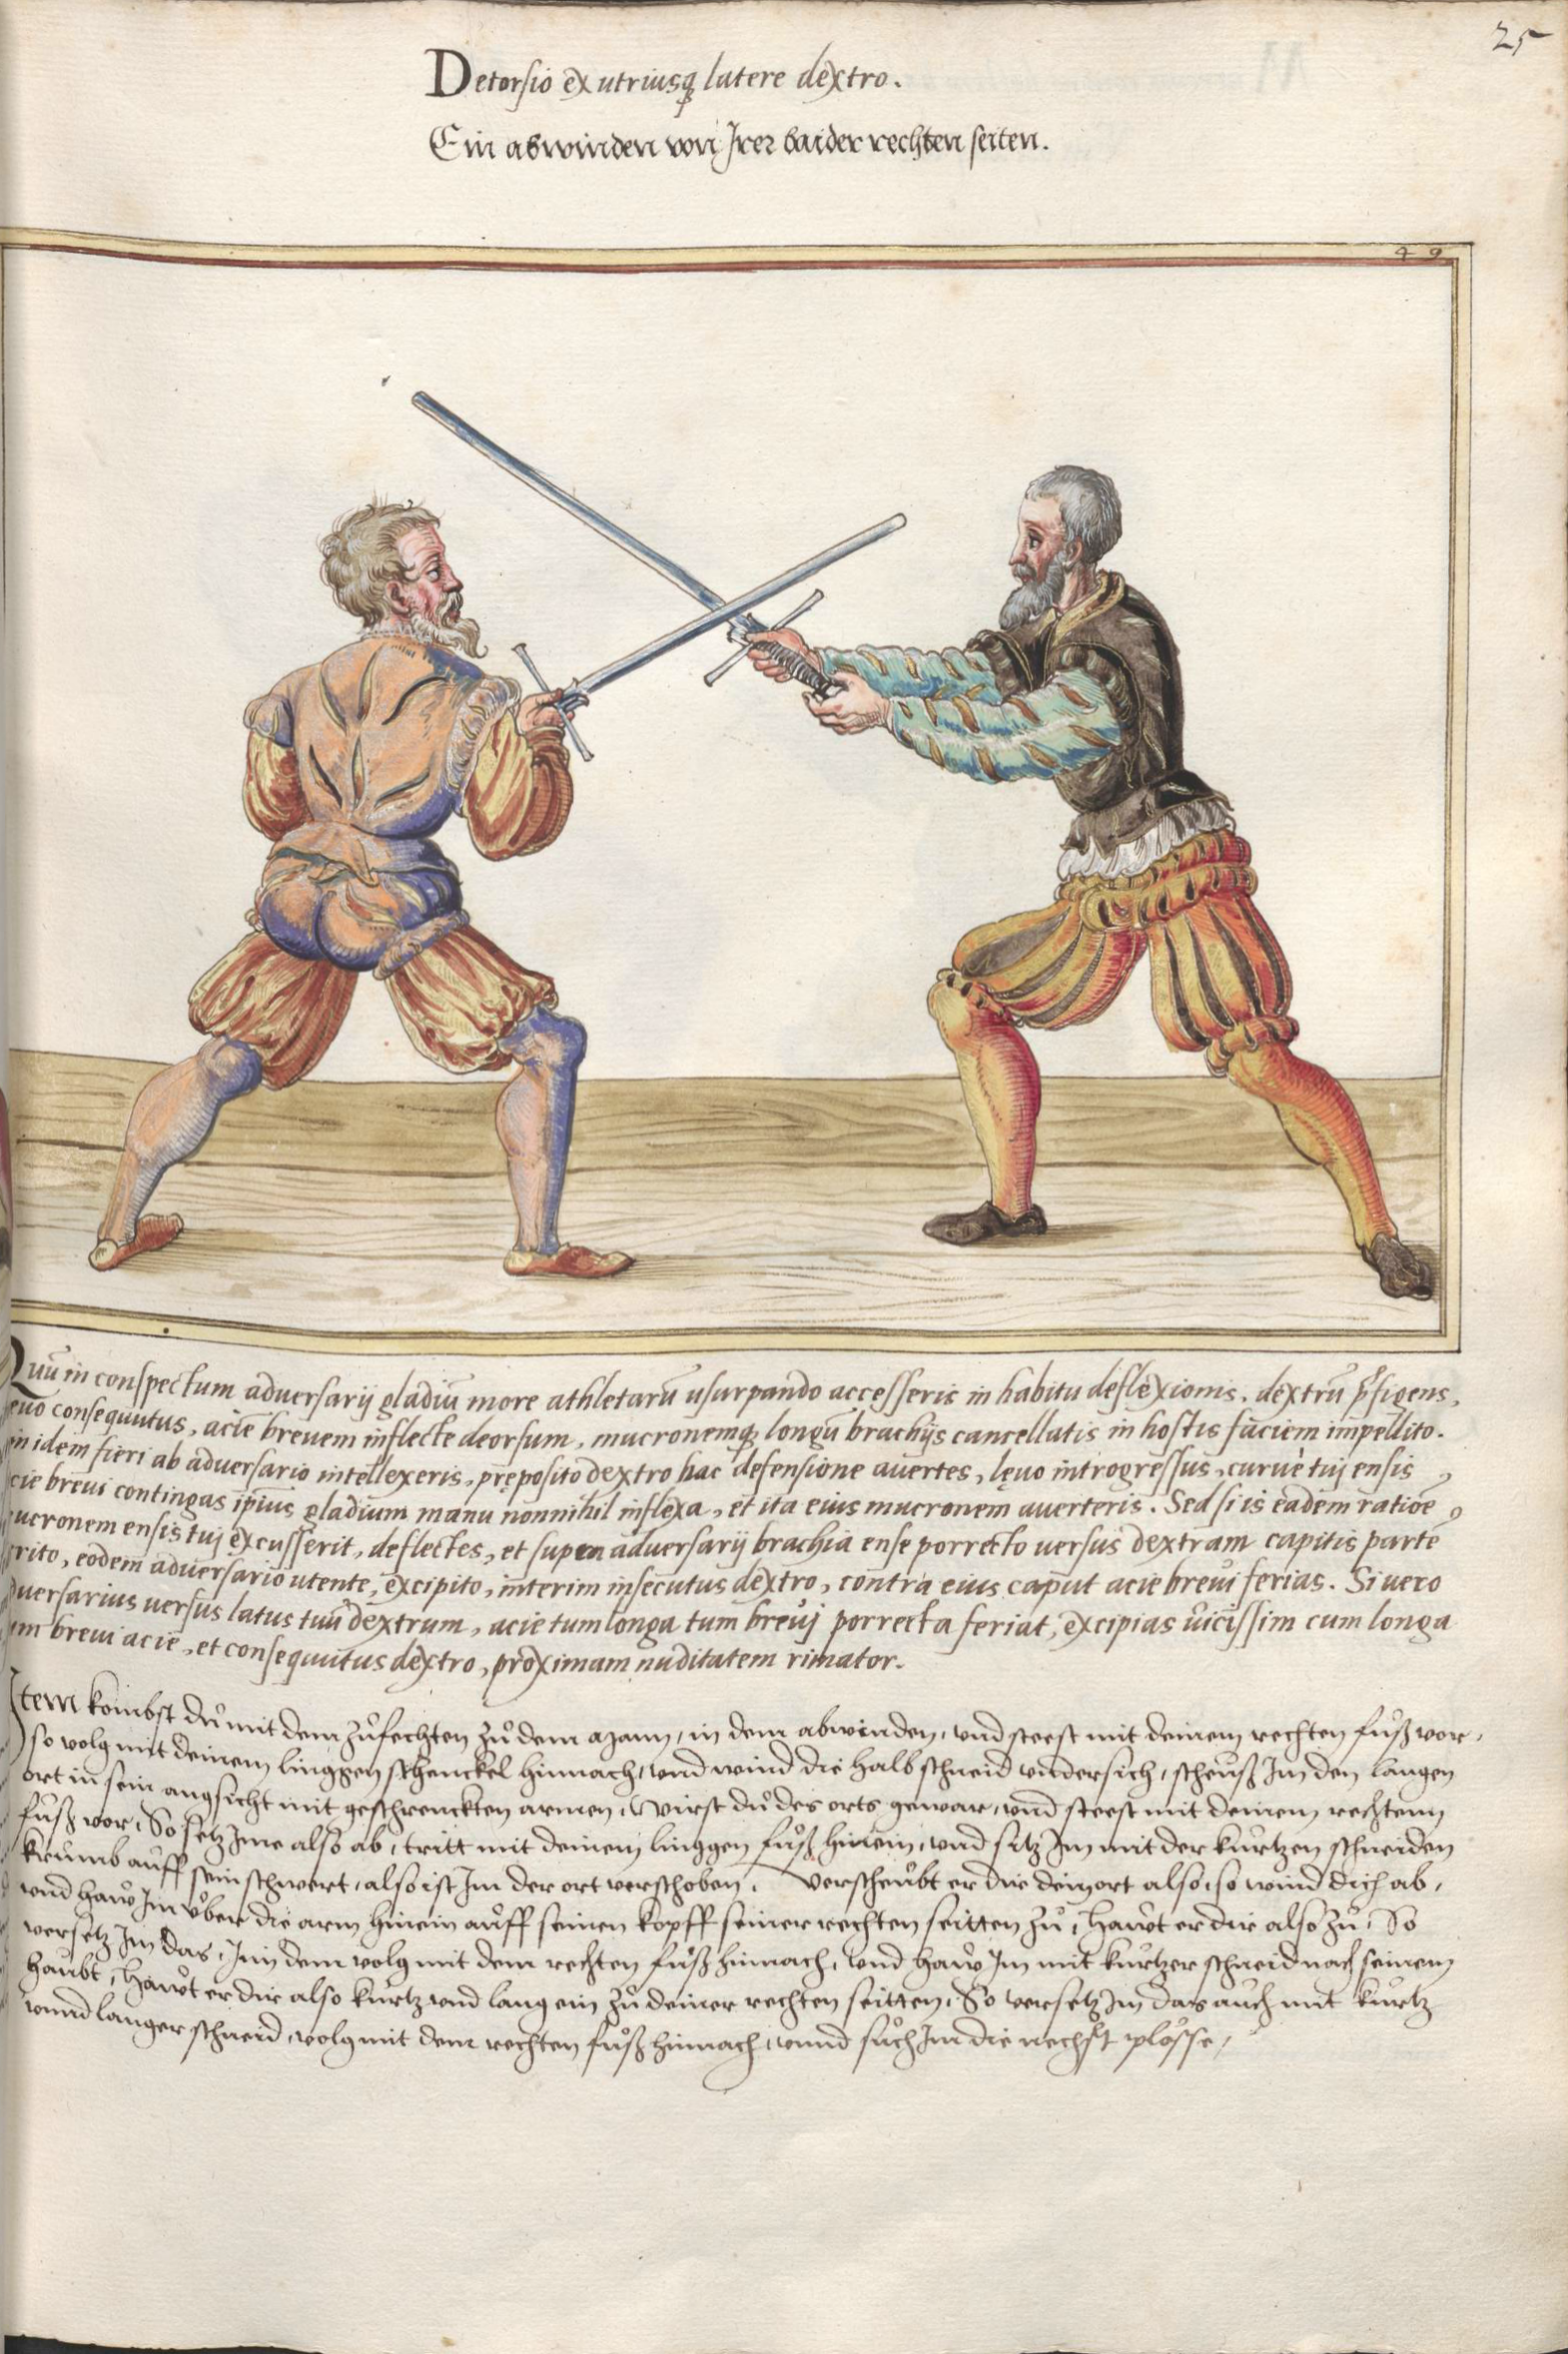 25
Detorsio ex utriusq latere dextro.
Ein abwinden von Irer baider rechten seiten.
49
Quū in conspectum adversarij gladiū more athletarū usurpando accesseris in habitu deflexionis, dextrū p̄figens,
evo consequutus, aciē brevem inflecte deorsum, mucronemq longū brachijs cancellatis in hostis faciem impellito.
in idem fieri ab adversario intellexeris, pręposito dextro hac defensione avertes, lęvo introgressus, curvè tuj ensis
cie brevi contingas ipsius gladium manu nonnihil inflexa, et ita eius mucronem averteris. Sed si is eadem ratiōe
ucronem ensis tuj excusserit, deflectes, et supra adversarij brachia ense porrecto versus dextram capitis partē
rito, eodem adversario utente, excipito, interim insecutus dextro, contra eius caput acie brevi ferias. Si vero
dversarius versus latus tuū dextrum, acie tum longa tum brevj porrecta feriat, excipias vicissim cum longa
um brevi acie, et consequutus dextro, proximam nuditatem rimator.
Item kombst dů mit dem zůfechten zů dem Mann, in dem abwinden, und steest mit deinem rechten fůß vor,
so volg mit deinem linggen schenckel hinnach, und wind die halb schneid undersich, scheuß Im den langen
ort in sein angsicht mit geschrenckten armen, Wirst dů des orts gewar, und steest mit deinem rechtenn
fůß vor, So setz Ime also ab, tritt mit deinem linggen fůß hinein, und sitz Im mit der kurtzen schneiden
krumb auff sein schwert, also ist Im der ort verschoben, Verscheubt er dir dein ort also, so wind dich ab,
und haw Im über die arm hinein auff seinen kopff seiner rechten seitten zů, hawt er dir also zů, So
versetz Im das, Inn dem volg mit dem rechten fůß hinnach, und haw Im mit kurtzer schneid nach seinem
haubt, hawt er dir also kurtz und lang ein zů deiner rechten seitten, So versetz Im das auch mit kurtz
unnd langer schneid, volg mit dem rechten fůß hinnach, unnd sůch Im die nechst plösse,